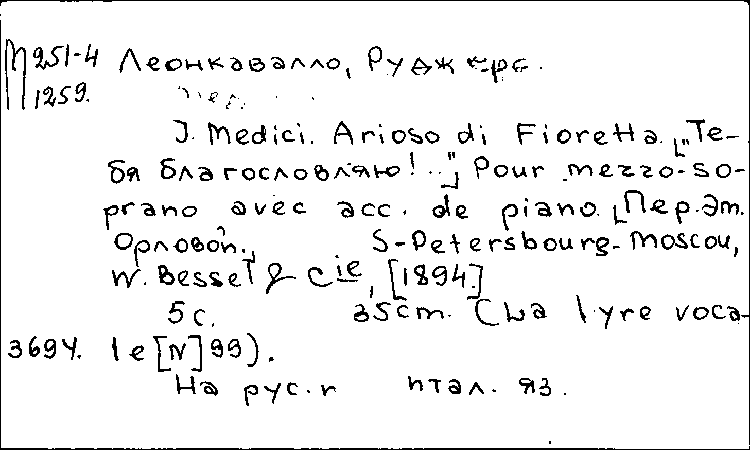 М 251-4 Леонкавалло, Руджеро.
1259.
I Medici. Arioso di Fioretta. [„Те-
бя благословляю!.."] Pour mezzo-so-
prano avec acc. de piano. [Пер. Эм.
Орловой.], S-Petersbourg-Moscou,
W. Bessel & Cie, [1894.]
5 с. 35 cm. (La lyre voca-
369ч. le [N] 99).
На рус. и итал. яз.